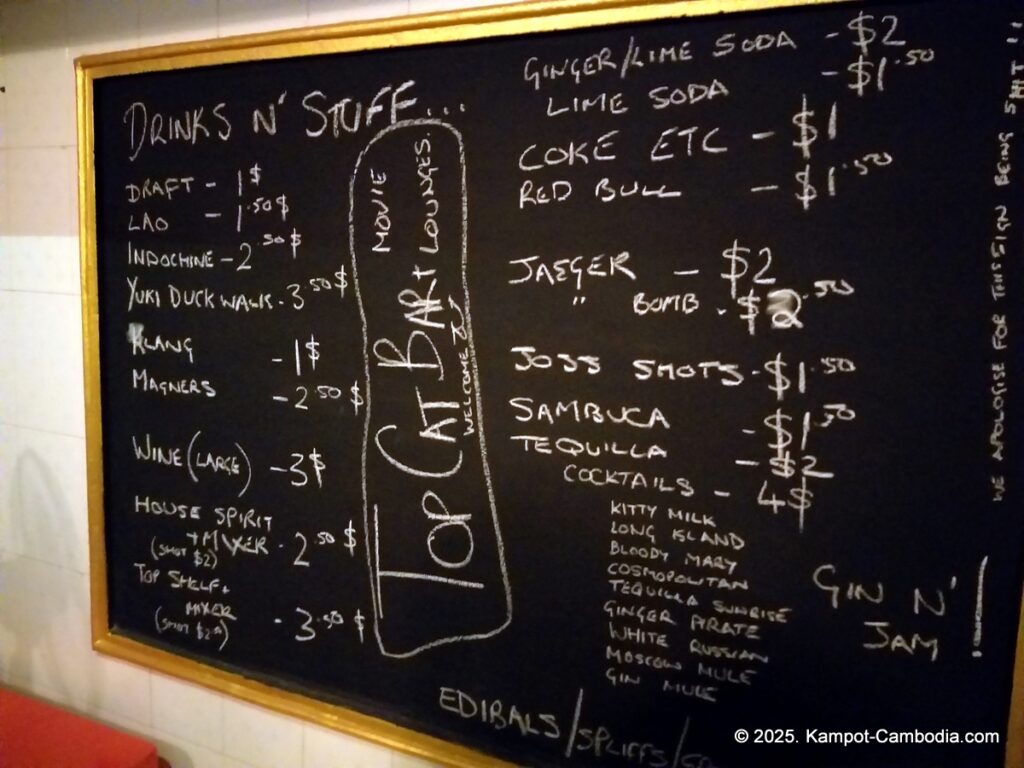 DRINKS N' STUFF...
DRAFT - 1$
LAO - 1.50$
INDOCHINE - 2.50$
YUKI DUCK WALK - 3.50$
KLANG - 1$
MAGNERS - 2.50$
WINE (LARGE) - 3$
HOUSE SPIRIT
+ MIXER - 2.50$
(SHOT $2)
TOP SHELF +
MIXER - 3.50$
TOP CAT BAR +
MOVIE
LOUNGES.
WELCOME
GINGER/LIME SODA - $2
LIME SODA - $1.50
COKE ETC - $1
RED BULL - $1.50
JAEGER - $2
" BOMB - $2.50
JOSS SHOTS - $1.50
SAMBUCA - $1.50
TEQUILLA - $2
COCKTAILS - 4$
KITTY MILK
LONG ISLAND
BLOODY MARY
COSMOPOLITAN
TEQUILLA SUNRISE
GINGER PIRATE
WHITE RUSSIAN
MOSCOW MULE
GIN MULE
GIN N'
JAM!
EDIBALS/SPLIFFS/
WE APOLOGISE FOR THIS SIGN BEING SHIT!!
© 2025. Kampot-Cambodia.com